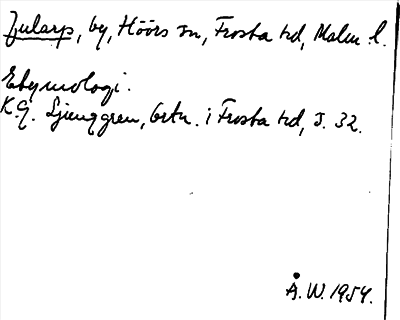 Jularp, by, Höörs sn, Frosta hd, Malm l.
Etymologi.
K.G. Ljunggren, Ortn. i Frosta hd, s. 32.
Å.W. 1954.